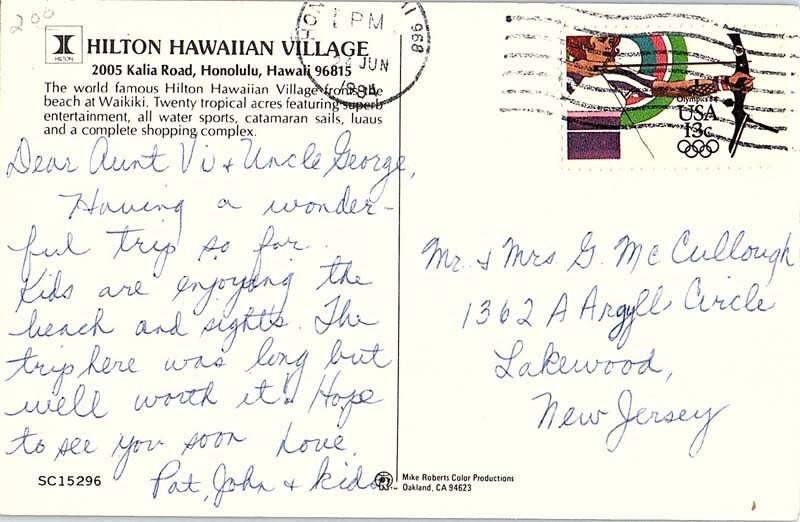 200
HILTON
HILTON HAWAIIAN VILLAGE
2005 Kalia Road, Honolulu, Hawaii 96815
The world famous Hilton Hawaiian Village fronts the
beach at Waikiki. Twenty tropical acres featuring superb
entertainment, all water sports, catamaran sails, luaus
and a complete shopping complex.
PM
24 JUN
1984
HI 968
Olympics 84
USA
13c
Dear Aunt Vi & Uncle George,
Having a wonder-
ful trip so far.
Kids are enjoying the
beach and sights. The
trip here was long but
well worth it. Hope
to see you soon Love,
Pat, John & kids
Mr. & Mrs G. McCullough
1362 A Argyll Circle
Lakewood,
New Jersey
SC15296
Mike Roberts Color Productions
Oakland, CA 94623